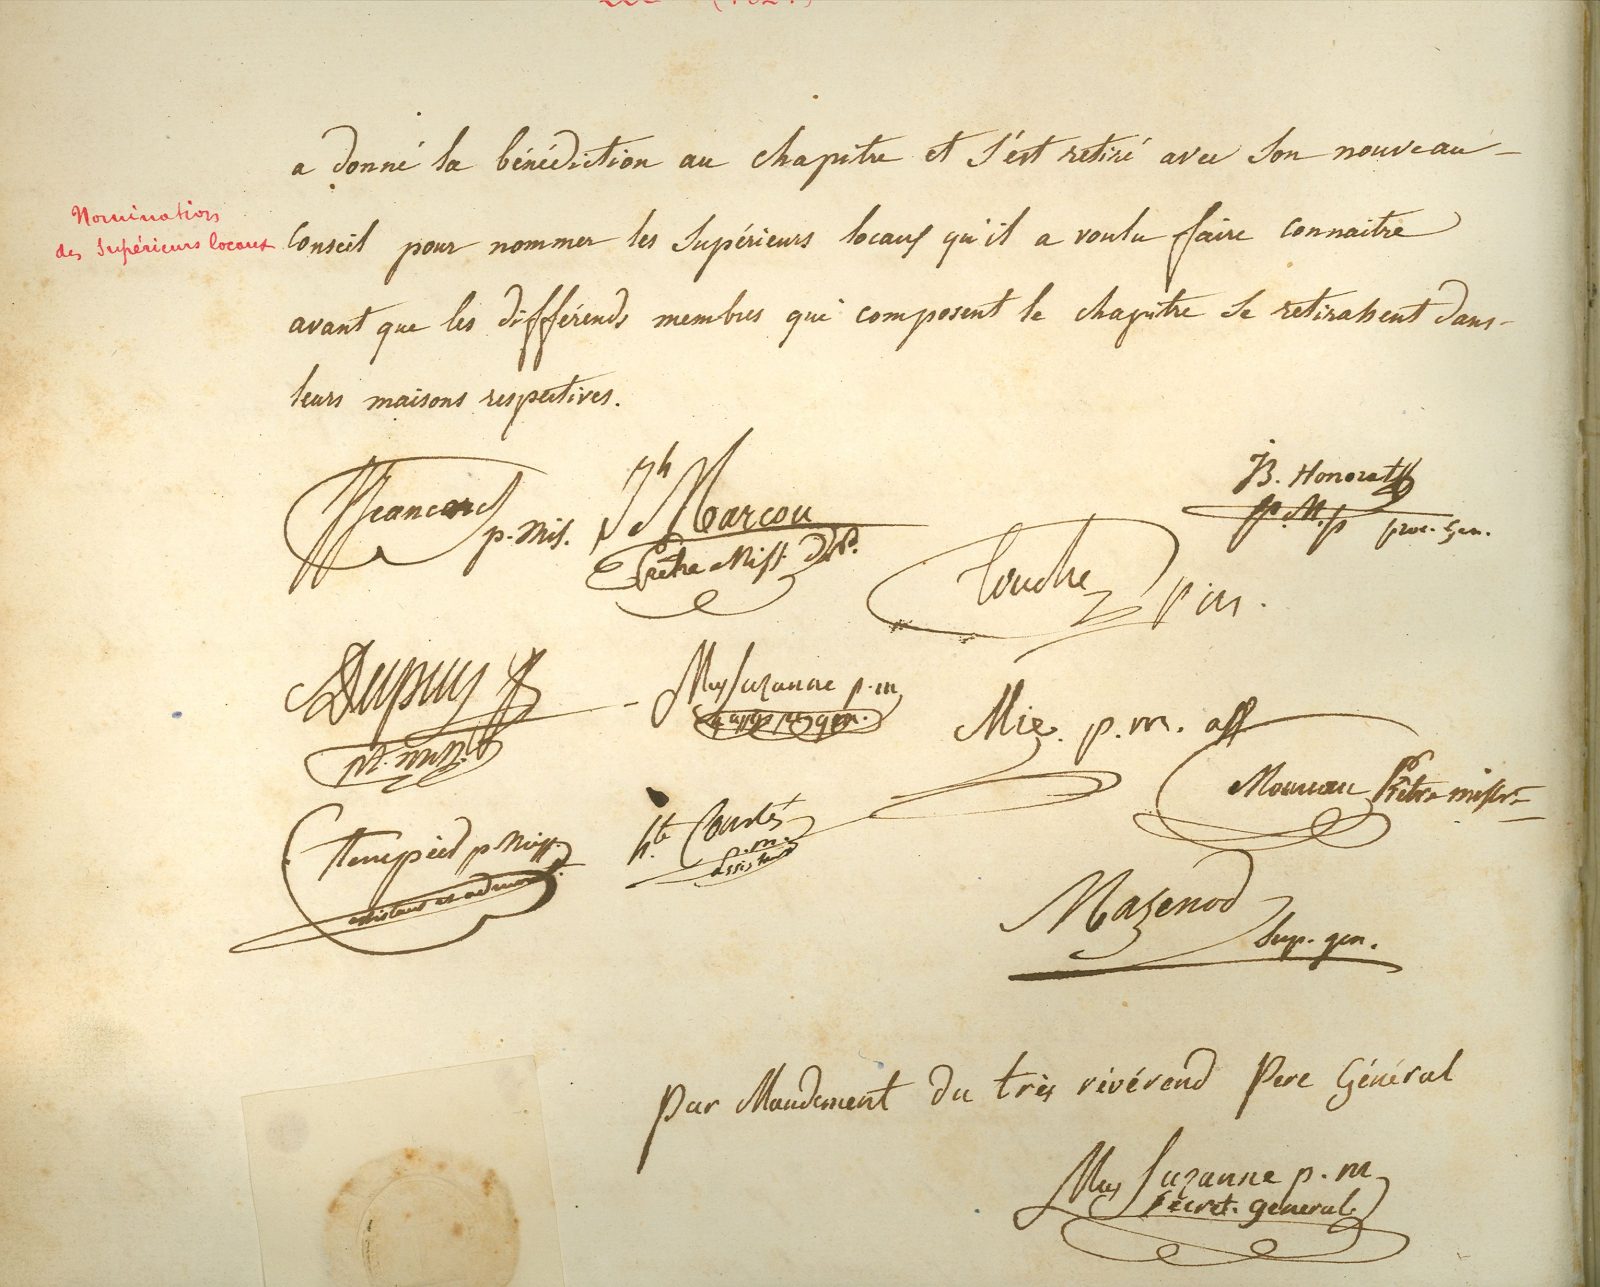 a donné la bénédiction au chapitre et s'est retiré avec son nouveau
Nominations
des Supérieurs locaux
Conseil pour nommer les Supérieurs locaux qu'il a voulu faire connaitre
avant que les différends membres qui composent le chapitre se retirassent dans
leurs maisons respectives.
Jeancard p. Mis.
Jh Marcou
Prêtre Miss.
B. Honorat
p. M. p proc. Gen.
Touche p m.
Dupuy
pt. miss.
Mus Suzanne p. m
Mie. p. m. ass
Moreau Prêtre missre
Tempier p Miss.
assistant et admon.
hte Courtès
p. m.
assistant
Mazenod
Sup. gen.
Par Mandement du très révérend Pere Général
Mus Suzanne p. m
Sécret. general.